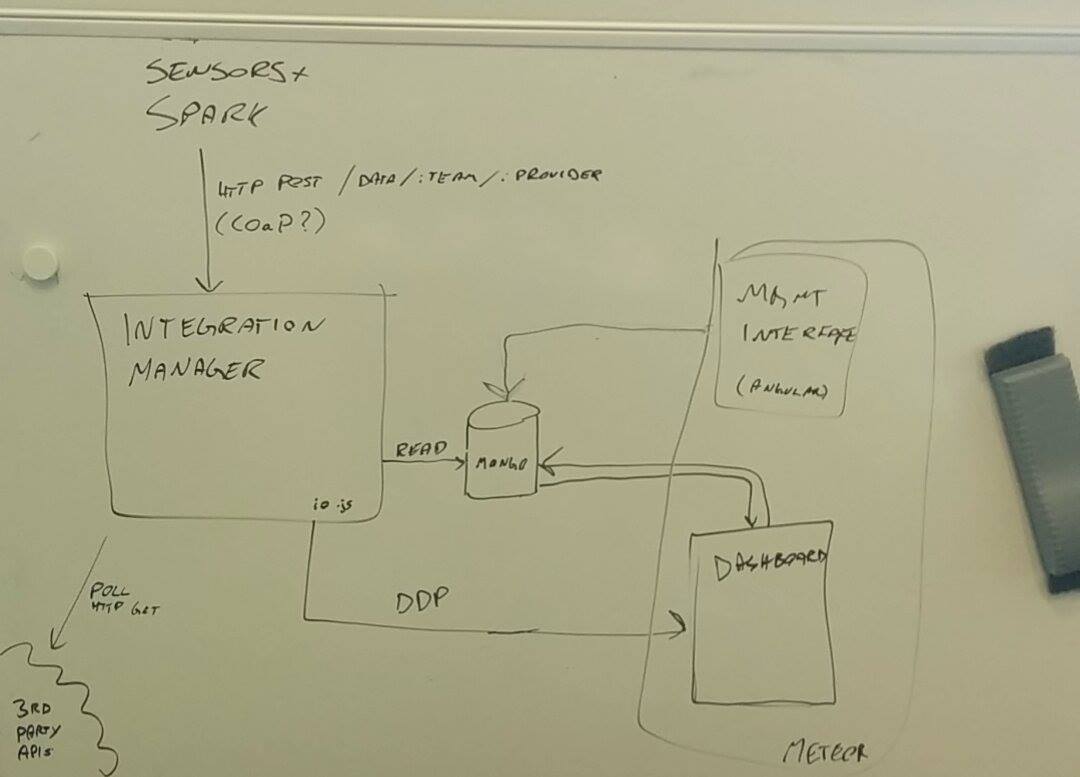 SENSORS+
SPARK
HTTP POST /DATA/:TEAM/:PROVIDER
(COaP?)
INTEGRATION
MANAGER
io.js
READ
MONGO
MGMT
INTERFACE
(ANGULAR)
DASHBOARD
DDP
POLL
HTTP GET
3RD
PARTY
APIs
METEOR